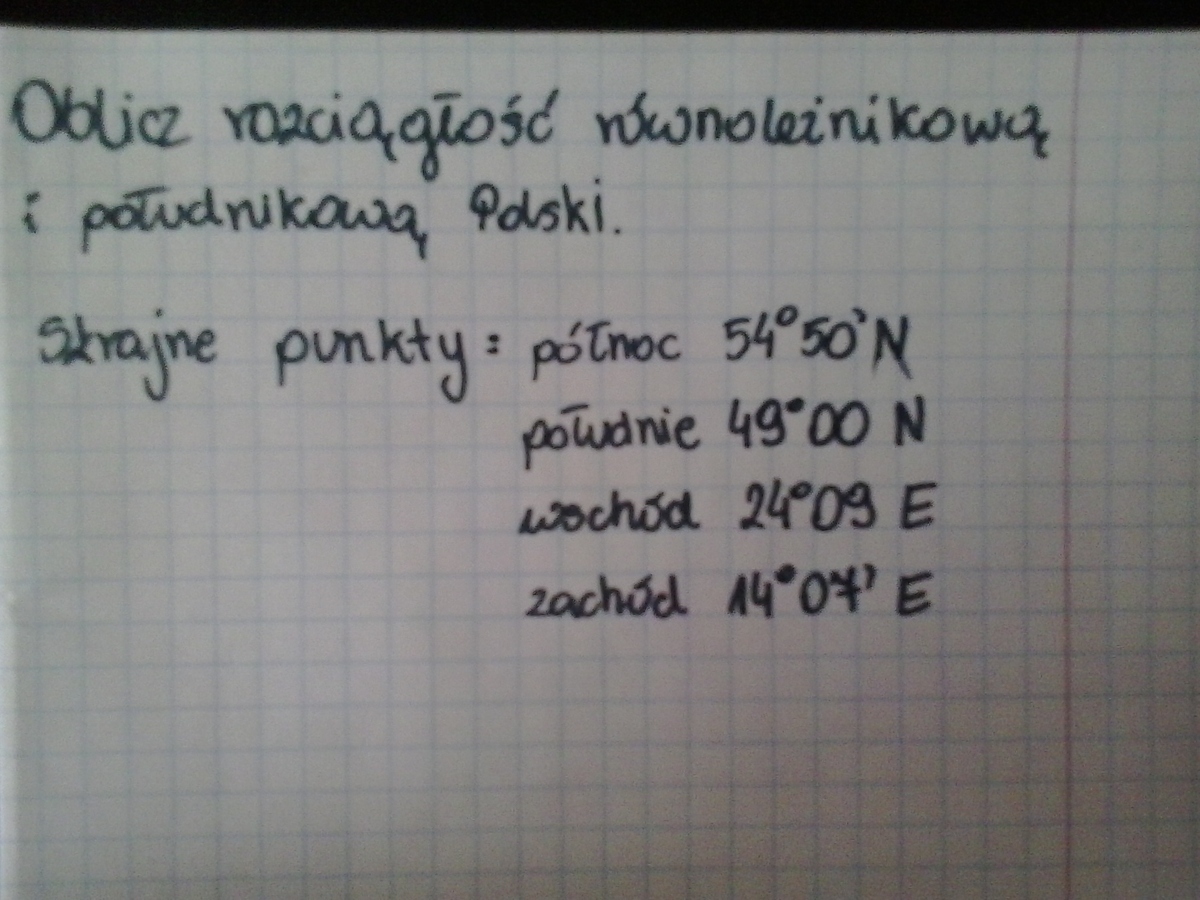 Oblicz rozciągłość równoleżnikową
i południkową Polski.
Skrajne punkty: północ 54°50' N
południe 49°00 N
wschód 24°09 E
zachód 14°07' E